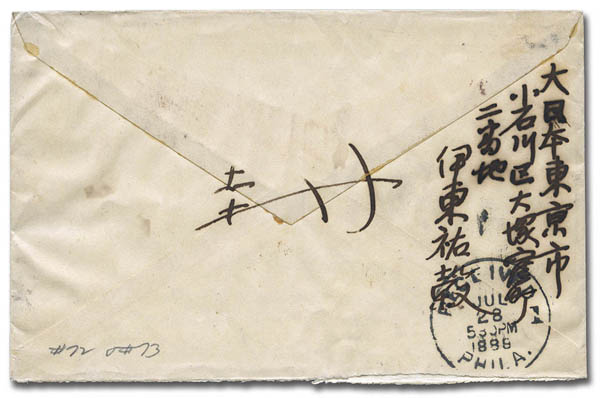 大日本東京市
小石川区大塚窪町
二番地
伊東祐穀
JUL
28
530PM
1898
PHILA.